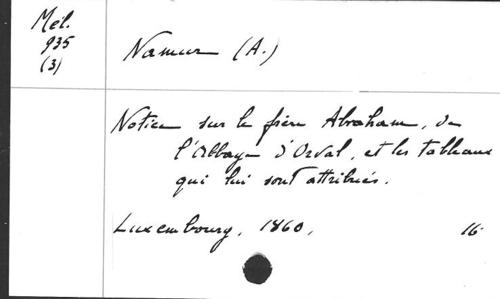 Mél.
935
(3)
Namur (A.)
Notice sur le frère Abraham, de
l'Abbaye d'Orval, et les tableaux
qui lui sont attribués.
Luxembourg, 1860.
16